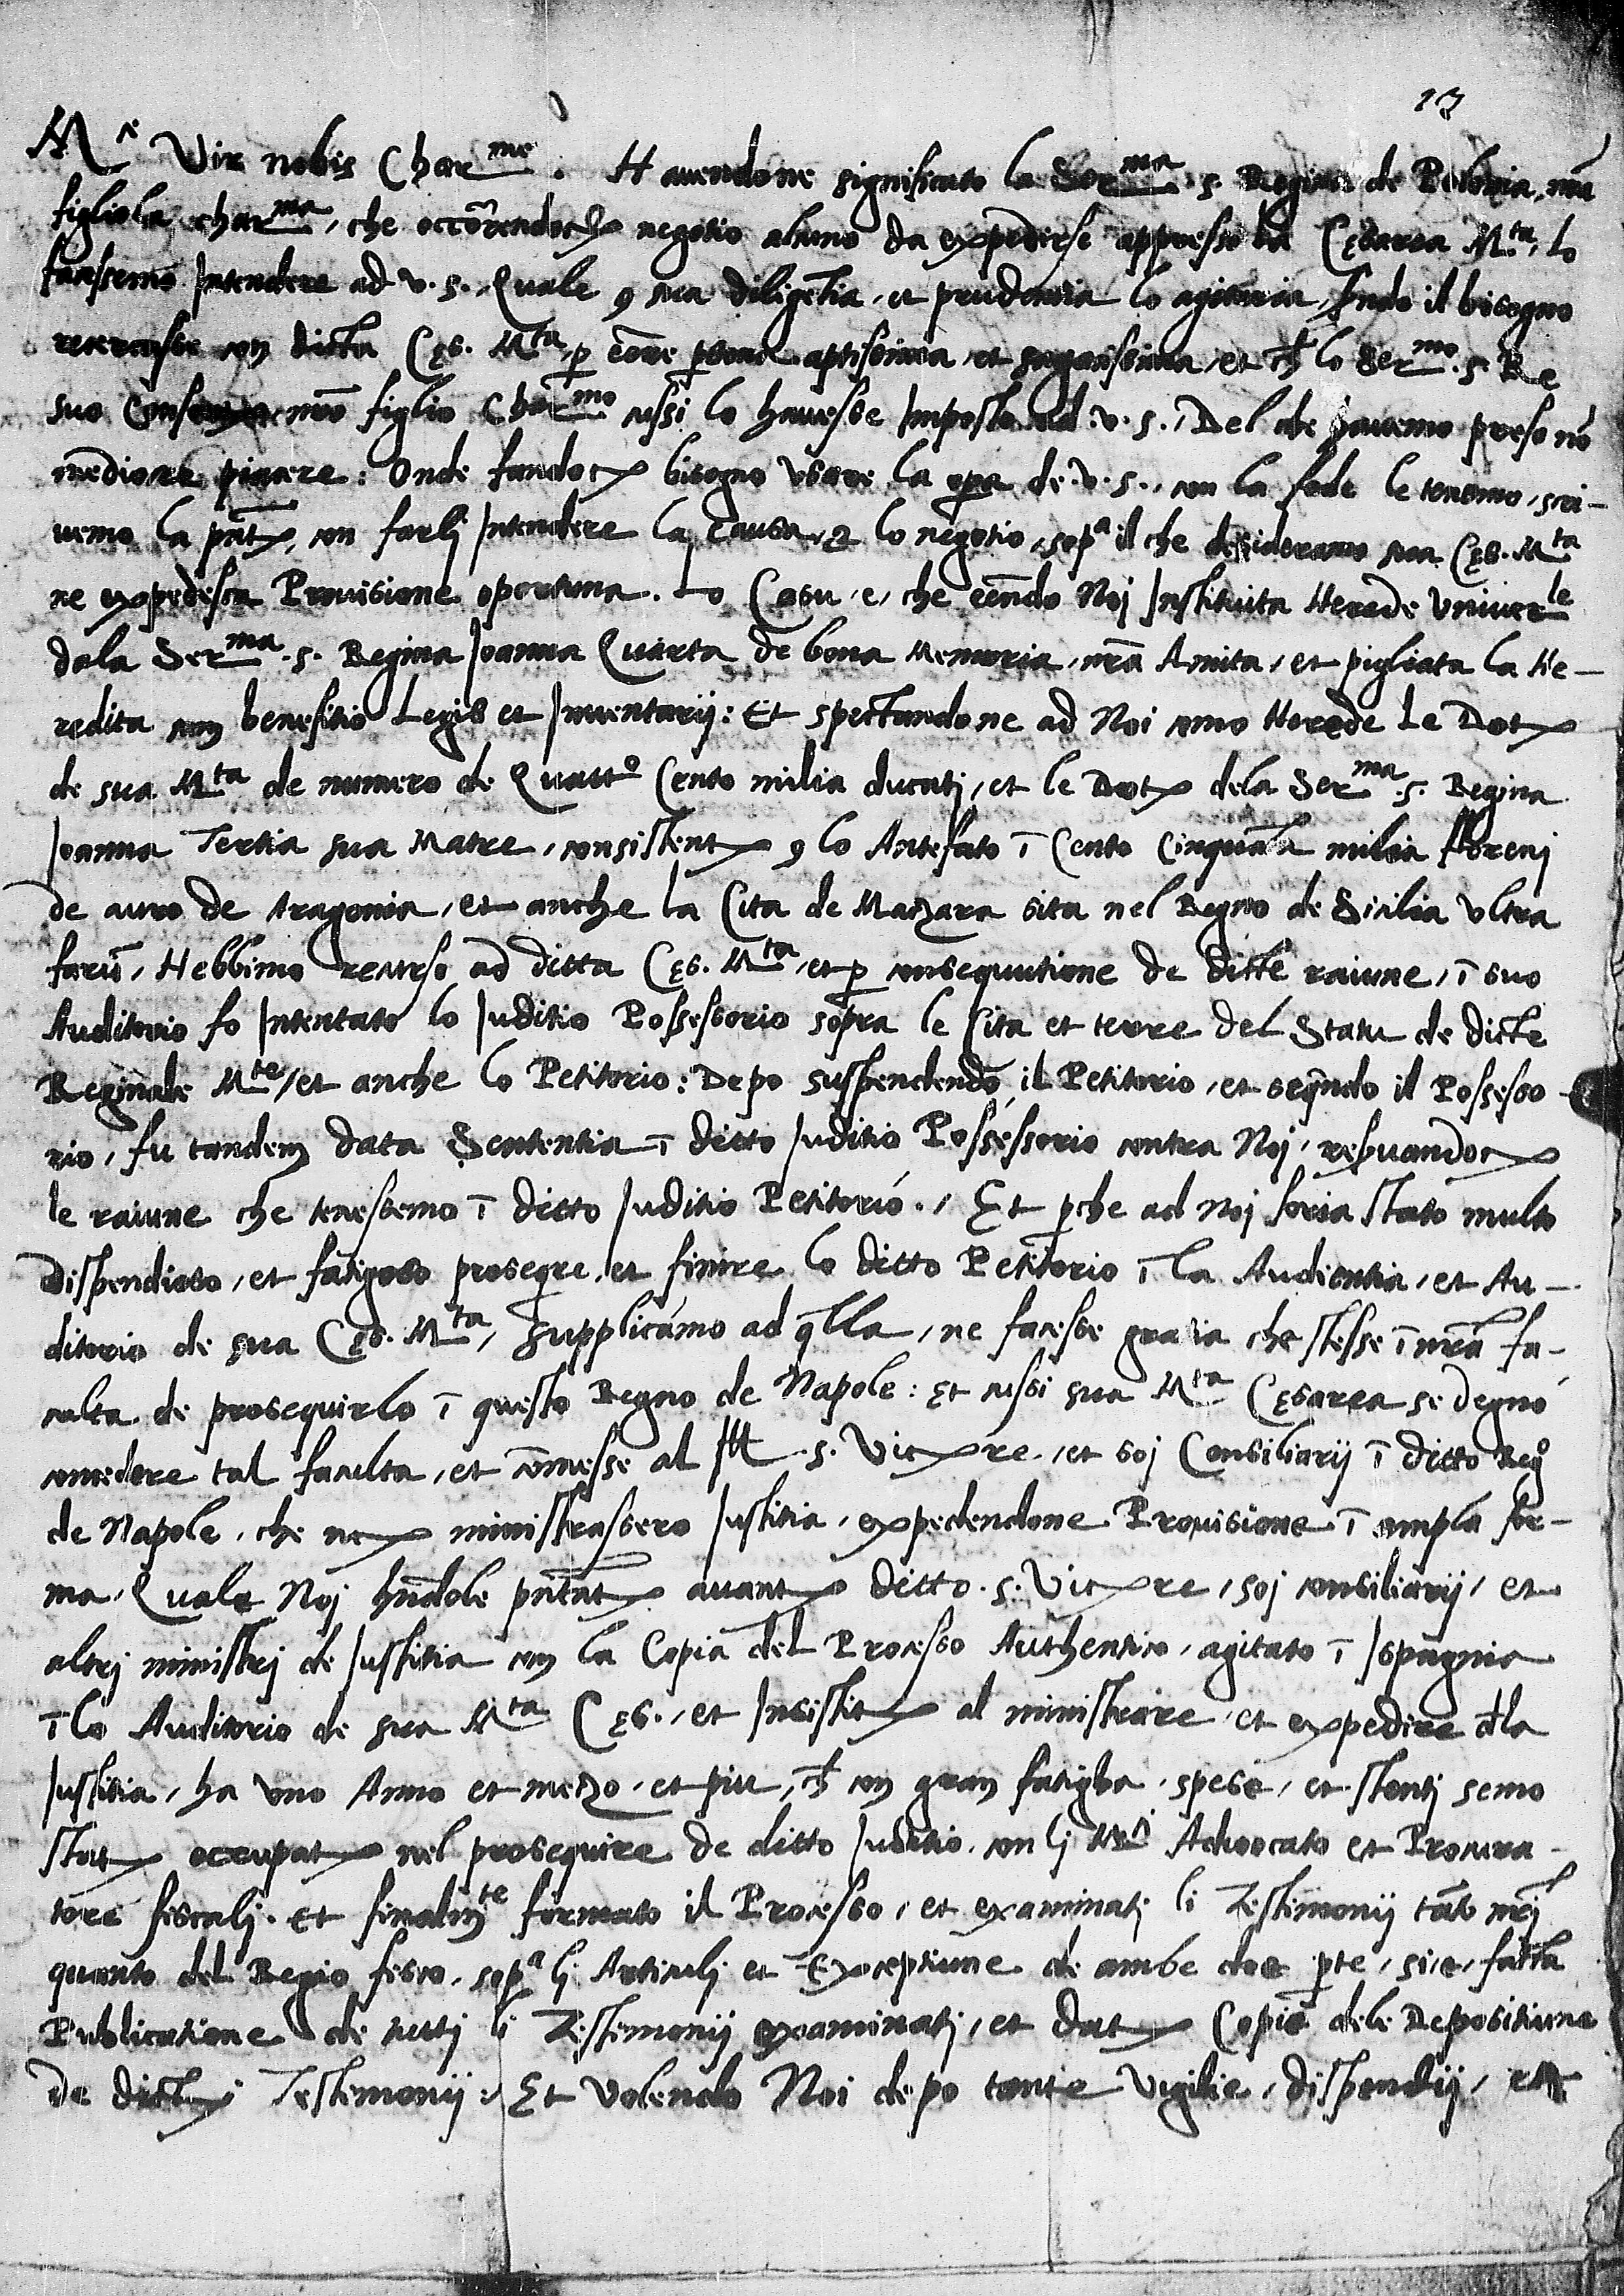 13
M.ce Vir nobis Char.me. Havendone significato la Ser.ma s. Regina de Polonia, nrã
figliola char.ma, che occorrendoce negotio alcuno da expedirse appresso la Cęsarea M.ta, lo
facessemo Intendere ad v. s., Quale p sua diligẽtia, et prudentia lo agitaria, sñdo il bisogno
recercasse con dicta Cęs. M.ta, p eẽre psona aptissima, et sagacissima, et ch lo Ser.mo s. Re
suo nrõ figlio Char.mo cussi lo havesse Imposto ad v. s., Del che havemo preso nõ
mediocre piacere: Onde facendoce bisogno usare la opa de v. s., con la fede le tenemo, scri-
vemo la pñte, con farli Intendere la causa, & lo negotio, sop.a il che desideramo sua Cęs. M.ta
ne expedesca Provisione oportuna. Lo Casu, e, che eẽndo Noj Instituita Herede Univer.le
dala Ser.ma s. Regina Joanna Quarta de bona Memoria, nrã Amita, et pigliata la He-
redita con benefitio Legis et Inventarij: Et spectandone ad Noi como Herede Le Dote
de sua M.ta de numero de Quatt.o Cento milia ducatj, et le Dote dela Ser.ma s. Regina
Joanna Tertia sua Matre, consistente p lo Antefato ĩ Cento Cinquãta milia florenj
de auro de Aragonia, et anche la Cita de Mazara sita nel Regno de Sicilia ultra
farũ, Hebbimo recurso ad ditta Cęs. M.ta, et p consequutione de ditte raiune, ĩ suo
Auditorio fo Intentato lo Juditio Possessorio sopra le Cita et terre del Statu de dicte
Reginale M.te, et anche lo Petitorio: Depo suspendendo il Petitorio, et seqñdo il Possesso-
rio, fu tandem data Sententia ĩ ditto Juditio Possessorio contra Noj, reservandoce
le raiune che tenessemo ĩ ditto Juditio Petitorio., Et pche ad Noj soria stato multo
dispendioso, et fatigoso proseqre, et finire lo ditto Petitorio ĩ la Audientia, et Au-
ditorio de sua Cęs. M.ta, supplicámo ad qlla, ne facesse gratia che stesse ĩ nrã fa-
culta de prosequirlo ĩ questo Regno de Napole: Et cussi sua M.ta Cęsarea se degnó
concedere tal faculta, et cõmesse al Ill. s. Vicere, et soj Consiliarij ĩ ditto Reg.o
de Napole, che nce ministrassero Justitia, expedendone Provisione ĩ ampla for-
ma, Quale Noj hñdole pñtate avante ditto s. Vicere, soj consiliarij, et
altrj ministrj de Justitia con la Copia del Processo Authentico, agitato ĩ Ispagnia
ĩ lo Auditorio de sua M.ta Cęs., et Insistite al ministrare, et expedire dla
Justitia, ha uno Anno et mezo, et piu, ch con gran fatigha, spese, et stentj semo
state occupate nel prosequire de ditto Juditio, con lj M.ci Advocato et Procura-
tore fiscalj. Et finalm.te formato il Processo, et examinatj li Testimonij tãto nrj
quanto del Regio fisco, sop.a lj Articulj et Exceptiune de ambe doe pte, si e, fatta
Publicatione de tuttj li Testimonij examinatj, et date Copie dele Depositiune
de dicti Testimonij: Et volendo Noi depo tante vigilie, dispendij, et